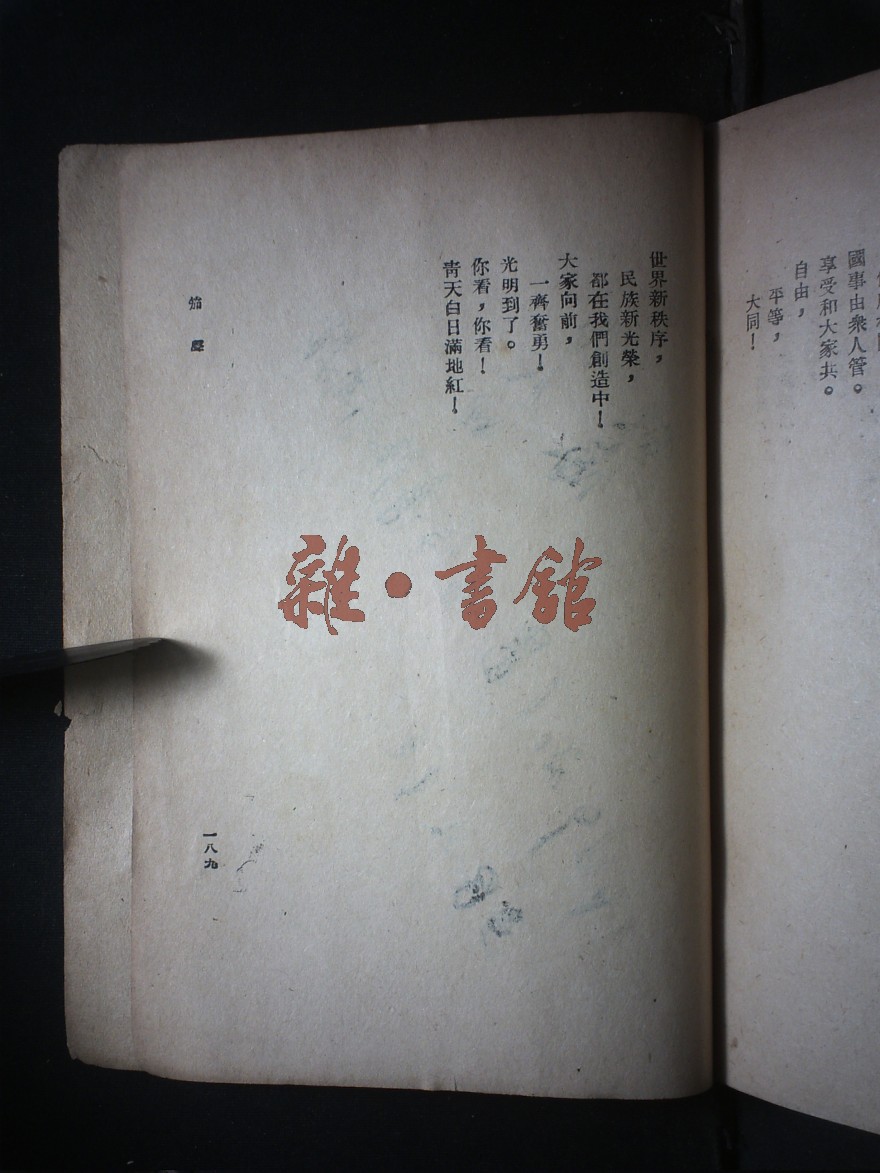 國事由衆人管。
享受和大家共。
自由，
平等，
大同！
世界新秩序，
民族新光榮，
都在我們創造中！
大家向前，
一齊奮勇！
光明到了。
你看，你看！
靑天白日滿地紅！
一八九
雜·書館